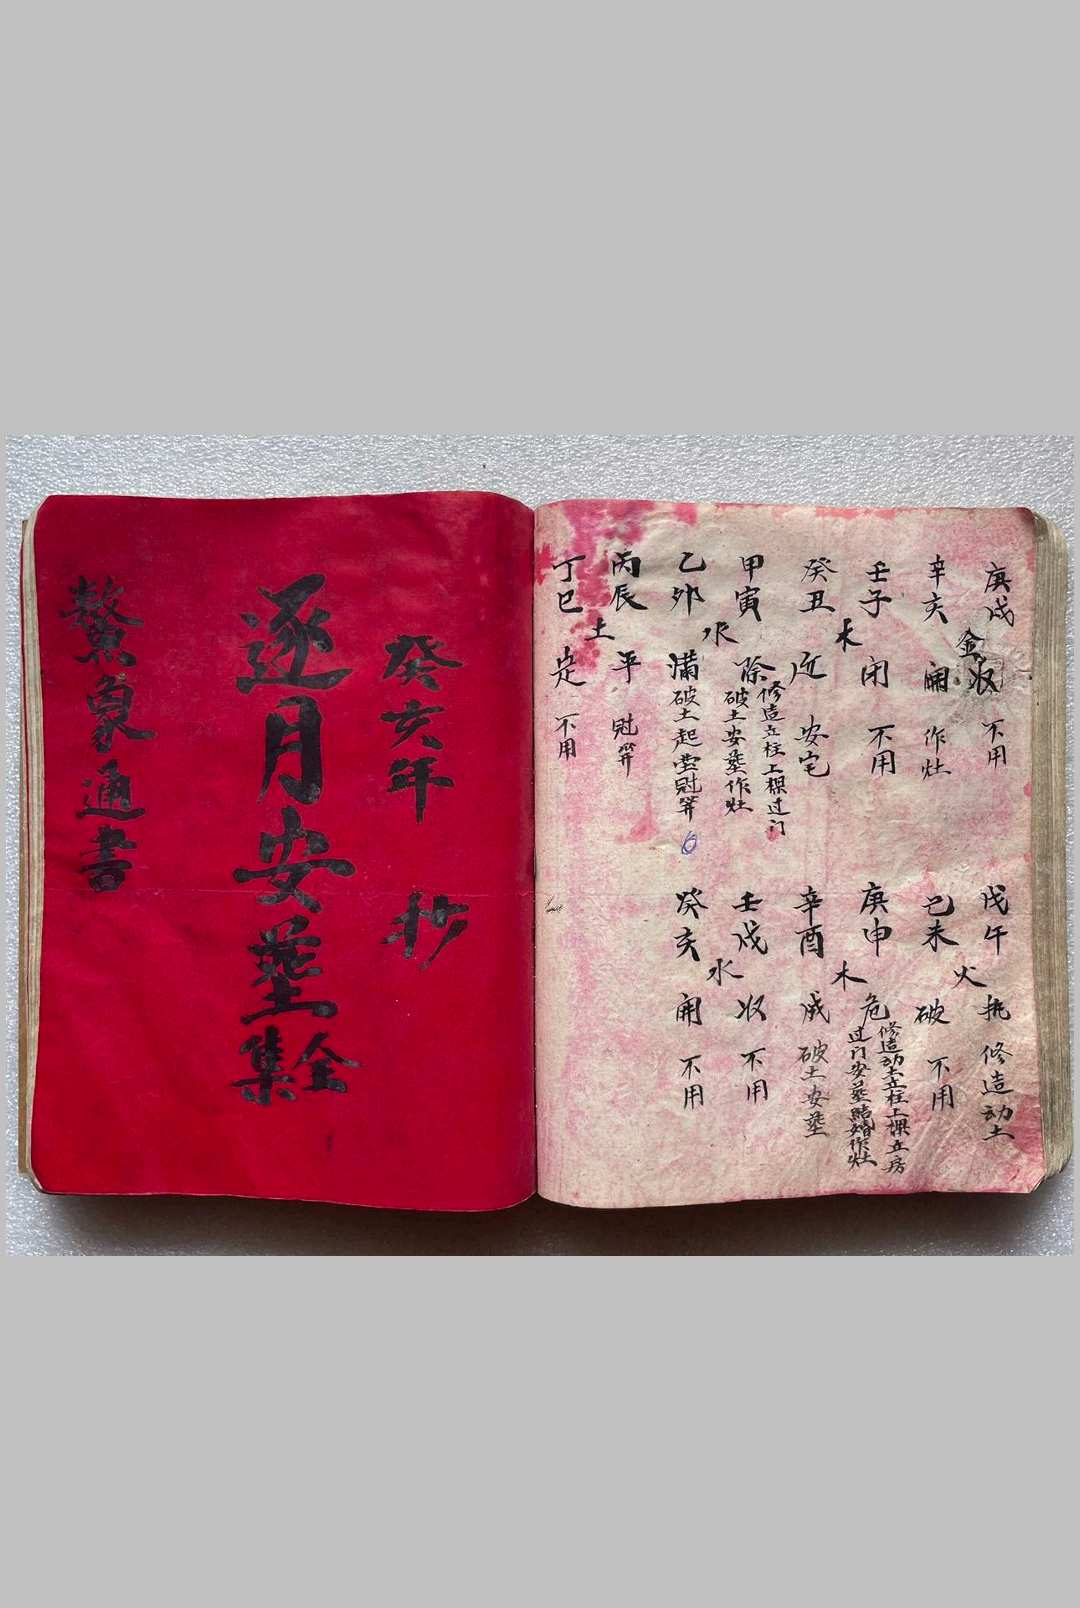 庚戌 金 収 不用
辛亥 開 作灶
壬子 木 闭 不用
癸丑 近 安宅
甲寅 水 除 修造立柱上樑过门
破土安葬作灶
乙卯 满 破土起塋冠笄 6
丙辰 土 平 冠笄
丁巳 定 不用
戊午 火 执 修造动土
己未 破 不用
庚申 木 危 修造动土立柱上樑立房
过门安葬結婚作灶
辛酉 成 破土安葬
壬戌 水 収 不用
癸亥 開 不用
癸亥年 抄
逐月安葬全集
鰲象通書